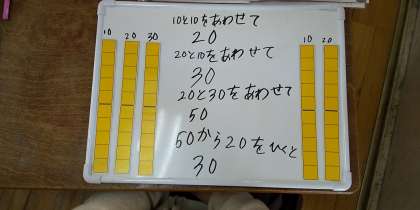 10と10をあわせて
20
20と10をあわせて
30
20と30をあわせて
50
50から20をひくと
30
10 20 30
10 20